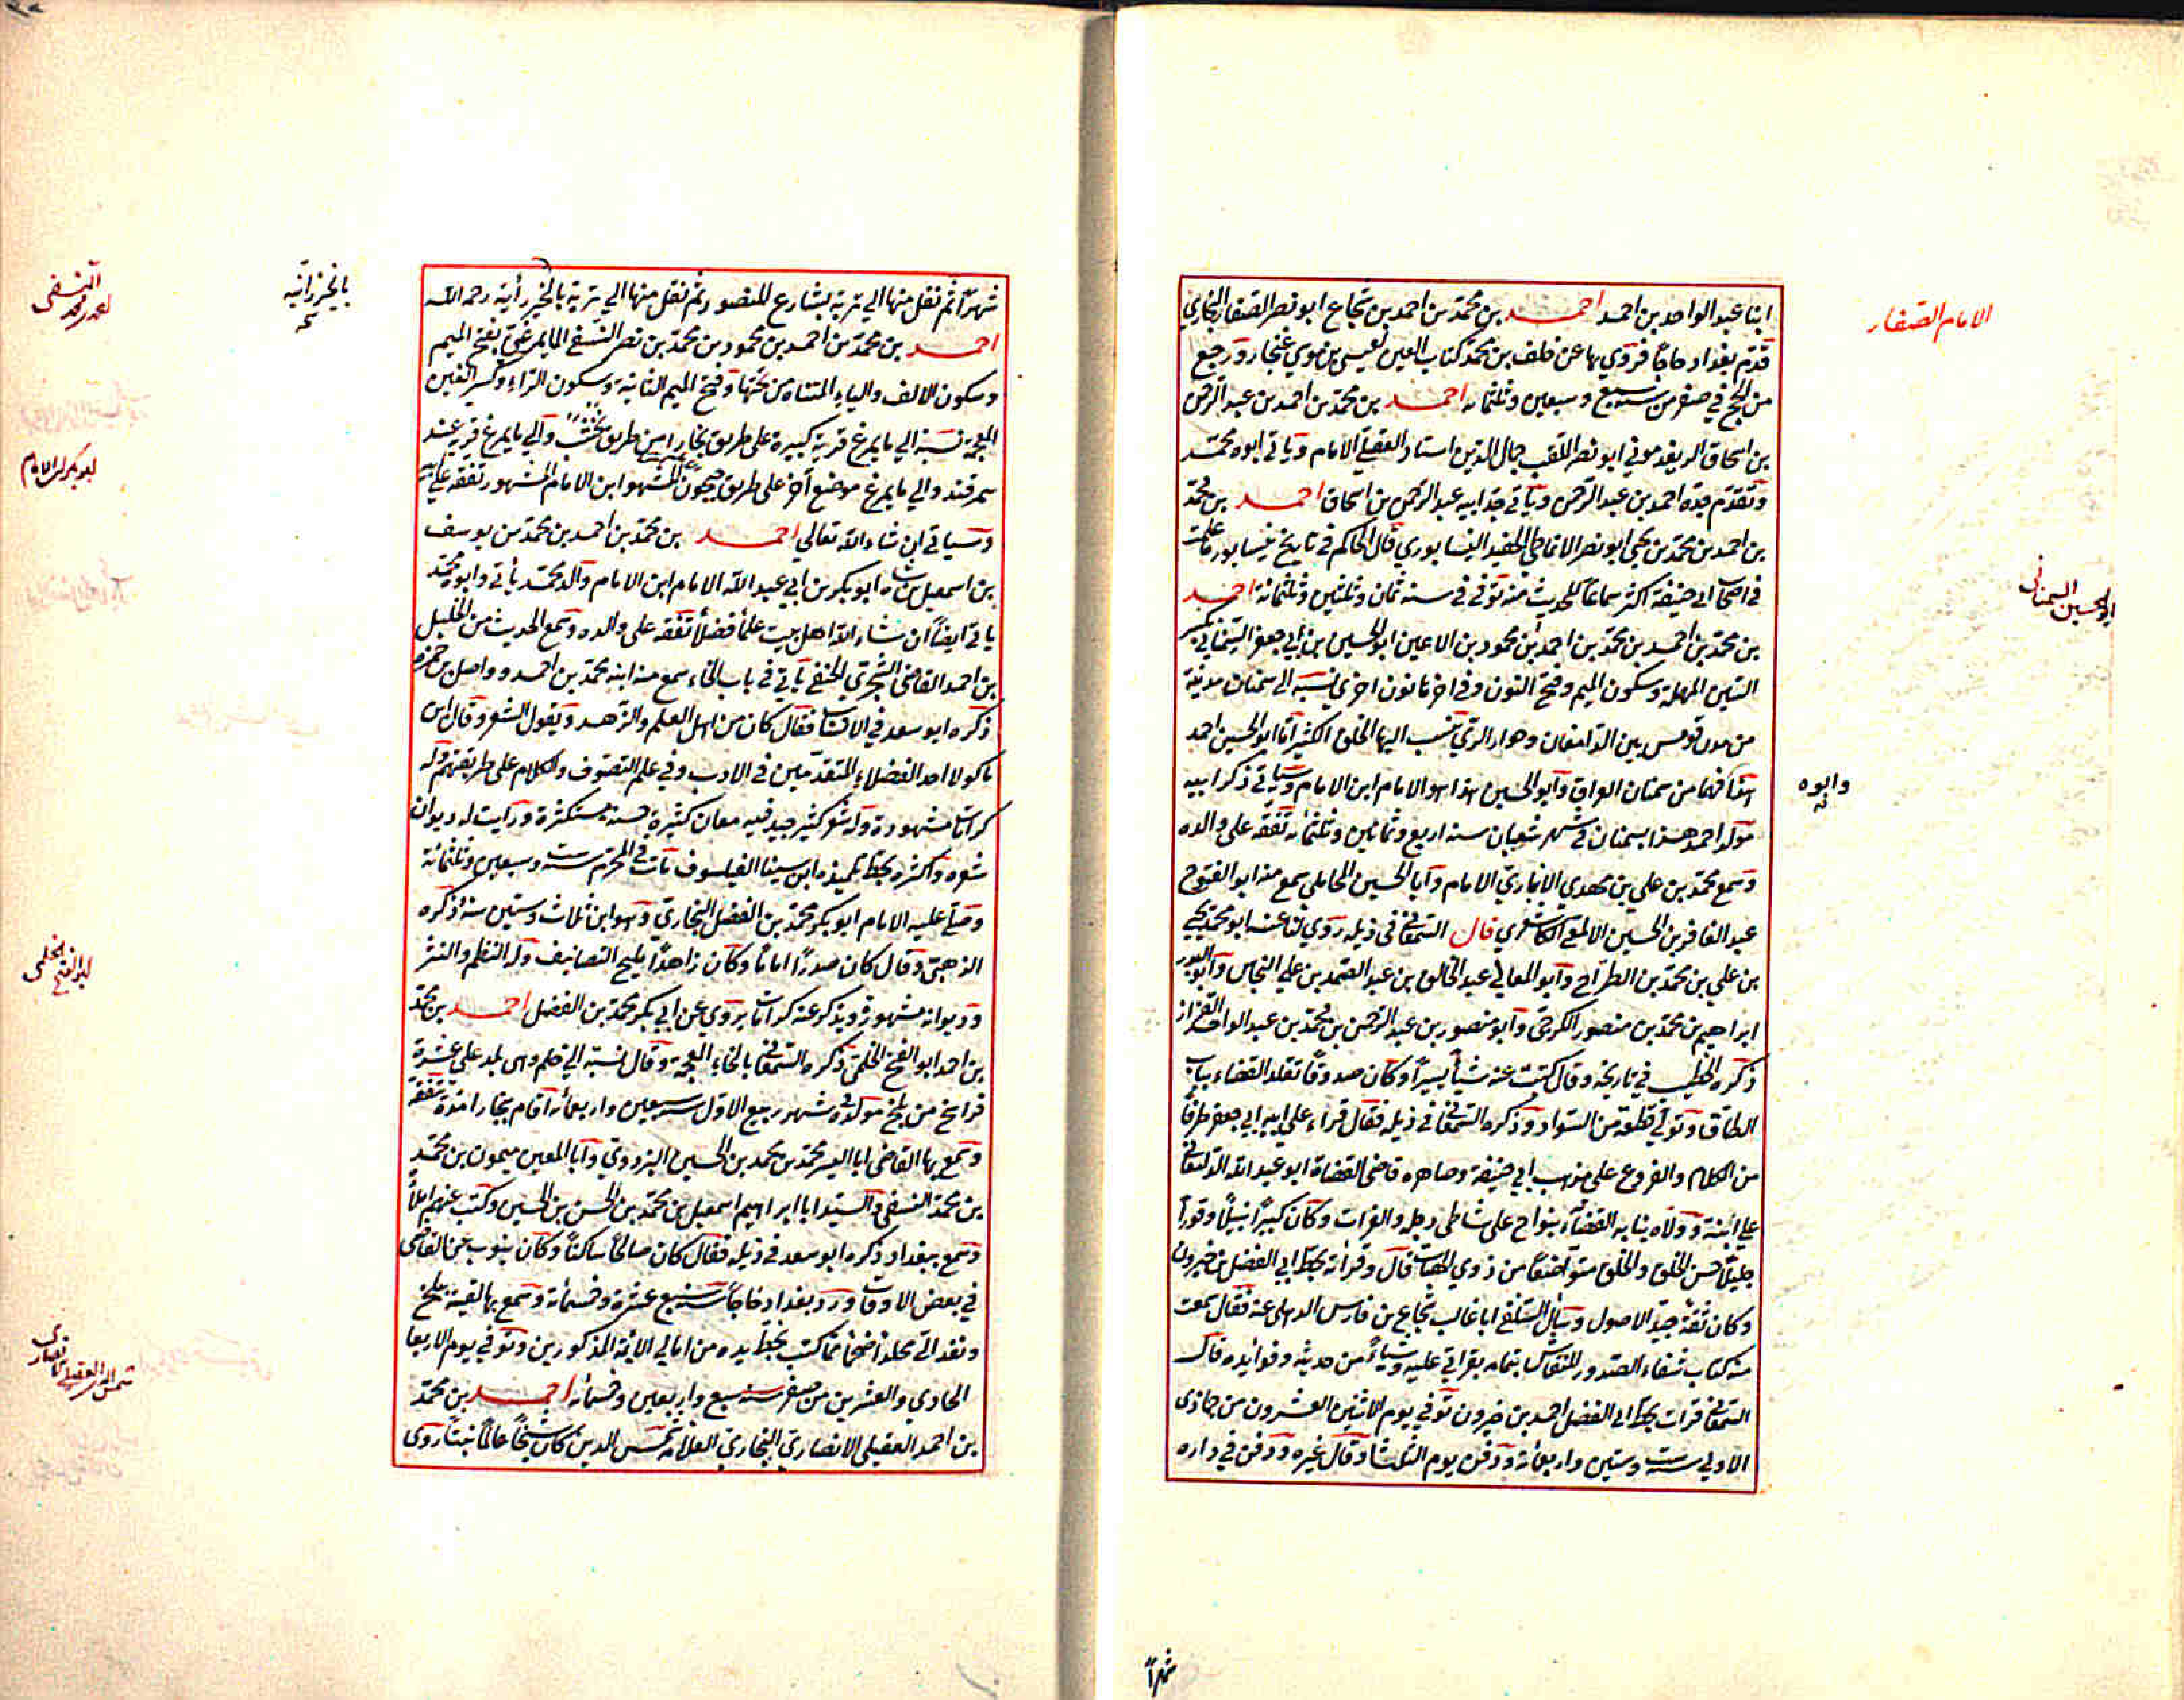 ابنا عبد الواحد بن احمد احمد بن محمد بن احمد بن شجاع ابو نصر الصفار البخاري
قدم بغداد حاجا فروي بها عن خلف بن محمد كتاب العين لعيسى بن موسي غنجار ورجع
من الحج في صفر من سنة سبع وسبعين وثلثمائه احمد بن محمد بن احمد بن عبد الرحمن
بن اسحاق الريغدموني ابو نصر الملقب جمال الدين استاد العقيلي الامام وياتي ابوه محمد
وتقدم جده احمد بن عبد الرحمن وياتي جد ابيه عبد الرحمن بن اسحاق احمد بن محمد
بن احمد بن محمد بن يحيى ابو نصر الانماطي الحفيد النيسابوري قال الحاكم في تاريخ نيسابور ما علمت
في اصحاب ابي حنيفة اكثر سماعا للحديث منه توفي في سنة ثمان وثلثين وثلثمائة احمد
بن محمد بن احمد بن محمد بن احمد بن محمود بن الاعين ابو الحسين بن ابي جعفر السمناني بكسر
السين المهملة وسكون الميم وفتح النون وفي اخرها نون اخري نسبة الى سمنان مدينة
من مدن قومس بين الدامغان وخوار الري ينسب اليها الخلق الكثير اما ابو الحسين احمد
هذا فهما من سمنان العراق وابو الحسين هذا هو الامام ابن الامام وسياتي ذكر ابيه
مولد احمد هذا بسمنان في شهر شعبان سنة اربع وثمانين وثلثمائه تفقه على والده
وسمع محمد بن علي بن مهدي الانباري الامام وابا الحسين المحاملي سمع منه ابو الفتوح
عبد الغافر بن الحسين الالمعي الكاشغري قال السمعاني في ذيله روي لنا عنه ابو محمد يحيى
بن علي بن محمد بن الطراح وابو المعالي عبد الخالق بن عبد الصمد بن علي النحاس وابو البدر
ابراهيم بن محمد بن منصور الكرخي وابو منصور بن عبد الرحمن بن محمد بن عبد الواحد القزاز
ذكره الخطيب في تاريخه وقال كتبت عنه شيأ يسيرا وكان صدوقا تقلد القضاء بباب
الطاق وتولي قطعة من السواد وذكره السمعاني في ذيله فقال قراء علي ابيه ابي جعفر طرفا
من الكلام والفروع على مذهب ابي حنيفة وصاهره قاضي القضاة ابو عبد الله الدامغاني
علي ابنته وولاه نيابة القضاء بنواح على شاطي دجله والفرات وكان كبيرا نبيلا وقورا
جليلا حسن الخلق والخلق متواضعا من ذوي الهيبات قال وقرات بخط ابي الفضل بن خيرون
وكان ثقة جيد الاصول وسأل السلفي ابا غالب شجاع بن فارس الذهلي عنه فقال سمعت
منه كتاب شفاء الصدور للنقاش بتمامه بقراتي عليه وشياء من حديثه وفوائده قال
السمعاني قرات بخط ابي الفضل احمد بن خيرون توفي يوم الاثنين العشرون من جمادى
الاولي سنة ست وستين واربعمائة ودفن يوم الثلثا وقال غيره ودفن في داره
شهرا
الامام الصفار
ابو الحسين السمناني
وابوه
شهرا ثم نقل منها الي تربة بشارع المنصور ثم نقل منها الي تربة بالخيزرأنية رحمه الله
احمد بن محمد بن احمد بن محمود بن محمد بن نصر النسفي المايمرغي بفتح الميم
وسكون الالف والياء المثناه من تحتها وفتح الميم الثانية وسكون الراء وكسر الغين
المعجمة نسبة الي مايمرغ قرية كبيرة على طريق بخارا من طريق نخشب والي مايمرغ قريه عند
سمرقند والي مايمرغ موضع آخر على طريق جيحون المشهور ابن الامام المشهور تفقه علي ابيه
وسياتي ان شاء الله تعالي احمد بن محمد بن احمد بن محمد بن يوسف
بن اسمعيل بن شاه ابو بكر بن ابي عبد الله الامام ابن الامام والد محمد يأتي وابوه محمد
ياتي ايضا ان شاء الله اهل بيت علماء فضلاء تفقه على والده وسمع الحديث من الخليل
بن احمد القاضي السجزي الحنفي يأتي في باب الخاء سمع منه ابنه محمد بن احمد وواصل بن حمزه
ذكره ابو سعد في الانساب فقال كان من اهل العلم والزهد ويقول الشعر وقال ابن
ماكولا احد الفضلاء المتقدمين في الادب وفي علم التصوف والكلام على طريقتهم وله
كرامات مشهورة وله شعر كثير جيد فيه معان كثيرة حسنة مستكثرة ورايت له ديوان
شعره واكثره بخط تلميذه ابن سينا الفيلسوف مات في المحرم سنة ست وسبعين وثلثمائة
وصلي عليه الامام ابو بكر محمد بن الفضل البخاري وهو ابن ثلاث وستين سنة ذكره
الذهبي وقال كان صدرا اماما وكان زاهدا مليح التصانيف وله النظم والنثر
وديوانه مشهور ويذكر عنه كرامات يروي عن ابي بكر محمد بن الفضل احمد بن محمد
بن احمد ابو الفتح الخلمي ذكره السمعاني بالخاء المعجمة وقال نسبة الي خلم وهي بلد علي عشرة
فراسخ من بلخ مولده في شهر ربيع الاول سنة سبعين واربعمأئه اقام ببخارا مدة تفقه
وسمع بها القاضي ابا اليسر محمد بن محمد بن الحسين البزدوي وابا المعين ميمون بن محمد
بن محمد النسفي والسيد ابا ابراهيم اسمعيل بن محمد بن الحسن بن الحسين وكتب عنهم املاء
وسمع ببغداد ذكره ابو سعد في ذيله فقال كان صالحا ساكنا وكان ينوب عن القاضي
في بعض الاوقات ورد بغداد حاجا سنة سبع عشرة وخمسمائة وسمع بها لقيته ببلخ
ونفد الى مجلدا ضخما مما كتب بخط يده من امالي الائمة المذكورين وتوفي يوم الاربعا
الحادي والعشرين من صفر سنة سبع واربعين وخمسمائه احمد بن محمد
بن احمد العقيلي الانصاري البخاري العلامة شمس الدين كان شيخا عالما ثبتا روى
بالخيزرانية
النسفي
احمد بن محمد
ابو بكر الامام
ابو الفتح الخلمي
شمس الدين العقيلي الانصاري